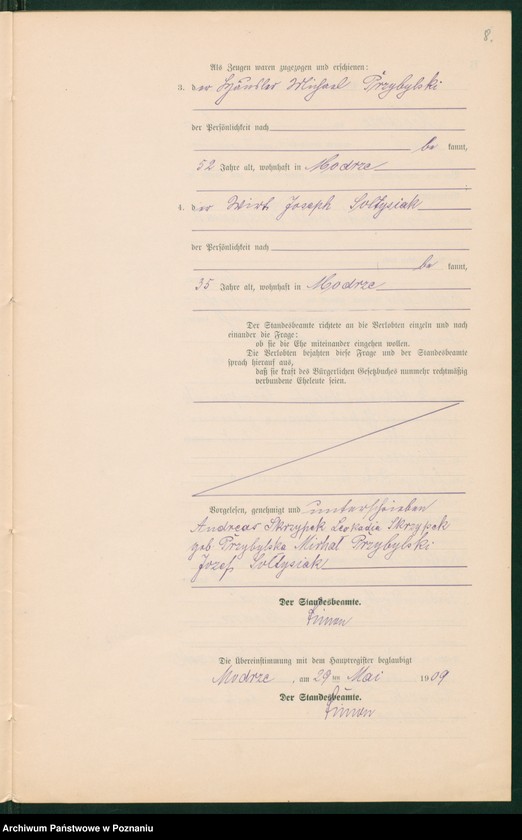 8.
Als Zeugen waren zugezogen und erschienen:
3. der Häusler Michael Przybylski
der Persönlichkeit nach
be kannt,
52 Jahre alt, wohnhaft in Modrze
4. der Wirt Joseph Sołtysiak
der Persönlichkeit nach
be kannt,
35 Jahre alt, wohnhaft in Modrze
Der Standesbeamte richtete an die Verlobten einzeln und nach
einander die Frage:
ob sie die Ehe miteinander eingehen wollen.
Die Verlobten bejahten diese Frage und der Standesbeamte
sprach hierauf aus,
daß sie kraft des Bürgerlichen Gesetzbuches nunmehr rechtmäßig
verbundene Eheleute seien.
Vorgelesen, genehmigt und unterschrieben
Andreas Skrzypek Leokadia Skrzypek
geb Przybylska Michał Przybylski
Jozef Sołtysiak
Der Standesbeamte.
Die Übereinstimmung mit dem Hauptregister beglaubigt
Modrze, am 29 ten Mai 1909
Der Standesbeamte.
Archiwum Państwowe w Poznaniu